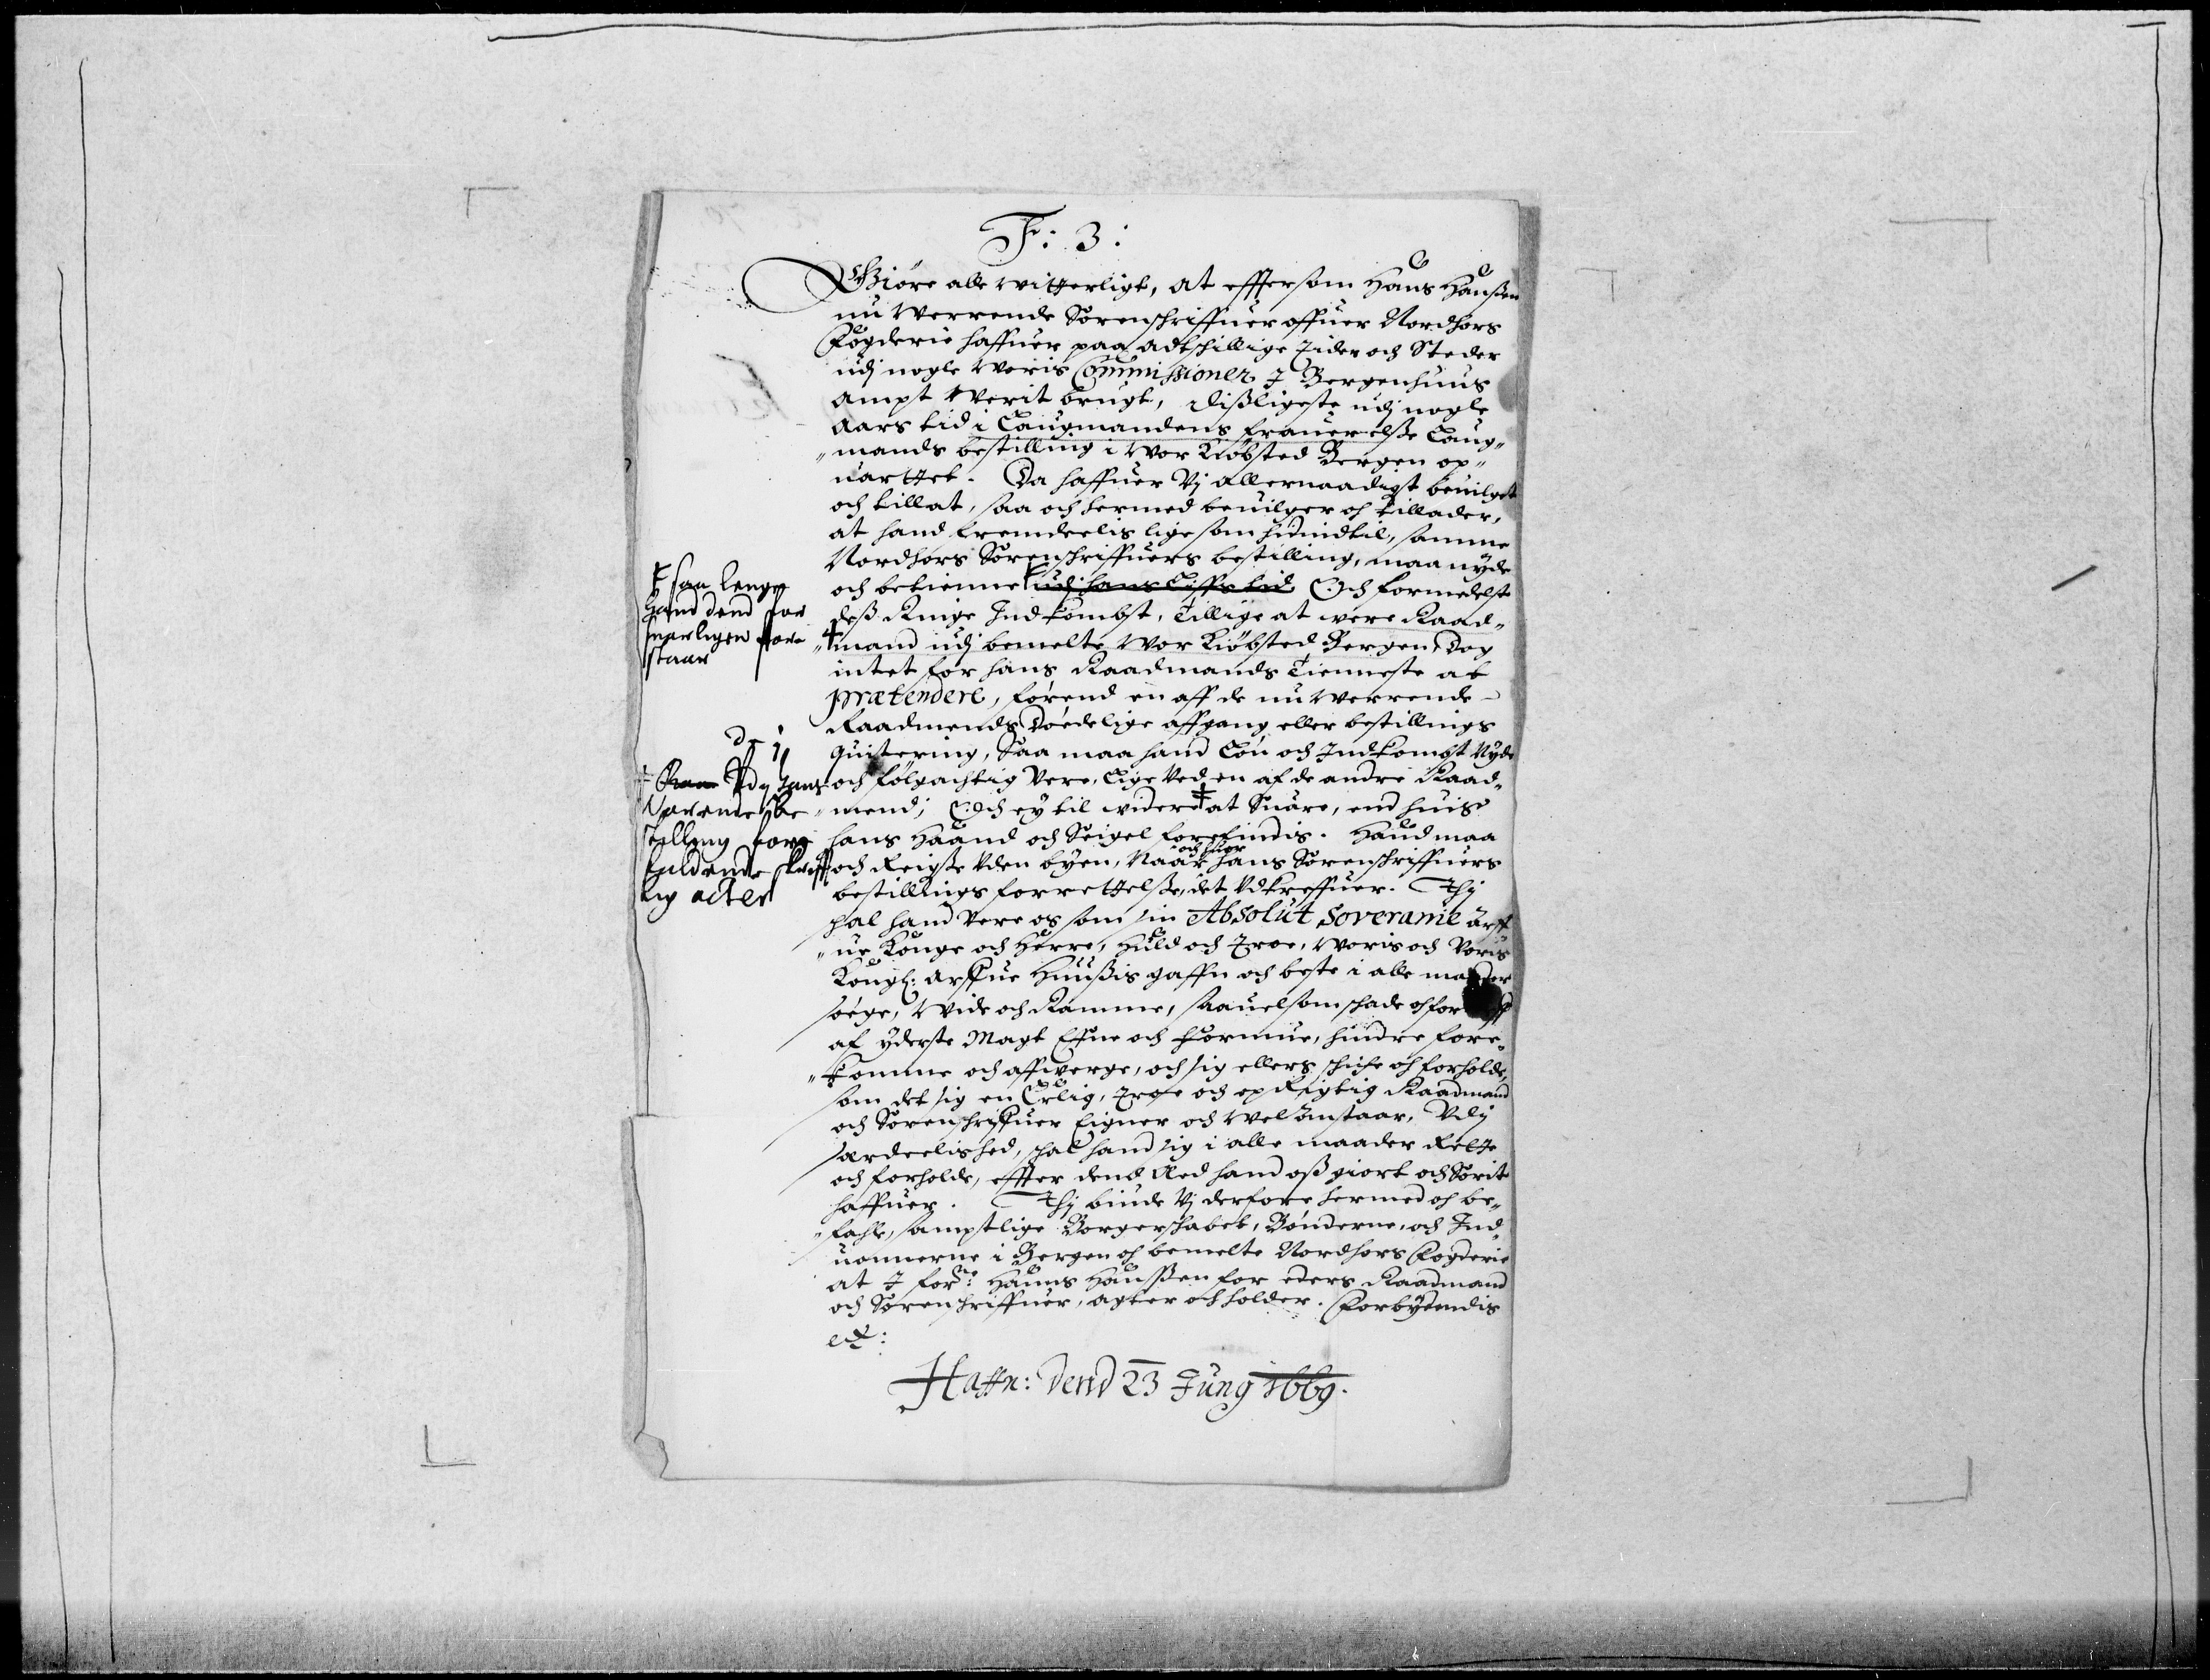 Fr: 3:
Giöre alle witterligt, at efftersom Hans Hanßen
nu werrende Sorenschriffuer offuer Nordhors
Fogderie haffuer paa adtschillige tider och Steder
udj nogle woris Commissioner I Bergenhuus
ampt werit brugt, disligeste udj nogle
aars tid i Laugmandens frauerelße Laug„
„mands bestilling i wor Kiöbsted Bergen op„
uarttet. Da haffuer Vj allernaadigst beuilget
och tillat, saa och hermed beuilger och tillader,
at hand fremdeelis lige som hidindtil, samme
Nordhors Sorenschriffuers bestilling, maa nyde
och betienne udj hans Liffs tid Och formedelst
deß Ringe Indkombst, tillige at were Raad„
„mand udj bemelte wor Kiöbsted Bergen Dog
intet for hans Raadmands tienneste at
prætendere, førend en aff de nu werrende
Raadmends Döedelige affgang eller bestillings
quitering, Saa maa hand Lön och Indkombst Nyde
och følgachtig Vere, Lige ved en af de andre Raad„
„mend; Och ey til widere at Suare, end huis
hans Haand och Seigel forefindis. Hand maa
och Reigse Uden byen, Naar och huor hans Sorenschriffuers
bestillings forrettelße, det Udkreffuer. Thj
schal hand Vere os som sin Absolut Soveranie arff„
„ue Konge och Herre, Huld och Troe, woris och Voris
Kongl: Arffue Huußis gaffn och beste i alle maader
söege, wide och Ramme, saauelsom schade och
af yderste Magt Effne och formue, hindre fore„
„komme och affwerge, och sig ellers schicke och forholde,
som det sig en Erlig, Troe och opRigtig Raadmand
och Sorenschriffuer Eigner och vel anstaar, Udj
særdeelished, schal hand sig i alle maader Rette
och forholde, effter dend Aed hand oß giort och Sorit
haffuer. Thj biude Vj derfore hermed och be„
„fahle, samptlige Borgerschabet, Bönderne, och Ind„
uonnerne i Bergen och bemelte Nordhors Fogderie
at I forne: Hanns Hanssen for eders Raadmand
och Sorenschriffuer, agter och holder. Forbydendis
etc:
Haffn: dend 23 Junij 1669.
saa lenge
hand dend for
suarligen fore
staar
Udj hans
Verende be
stilling fore
faldende skrifft
lig acter